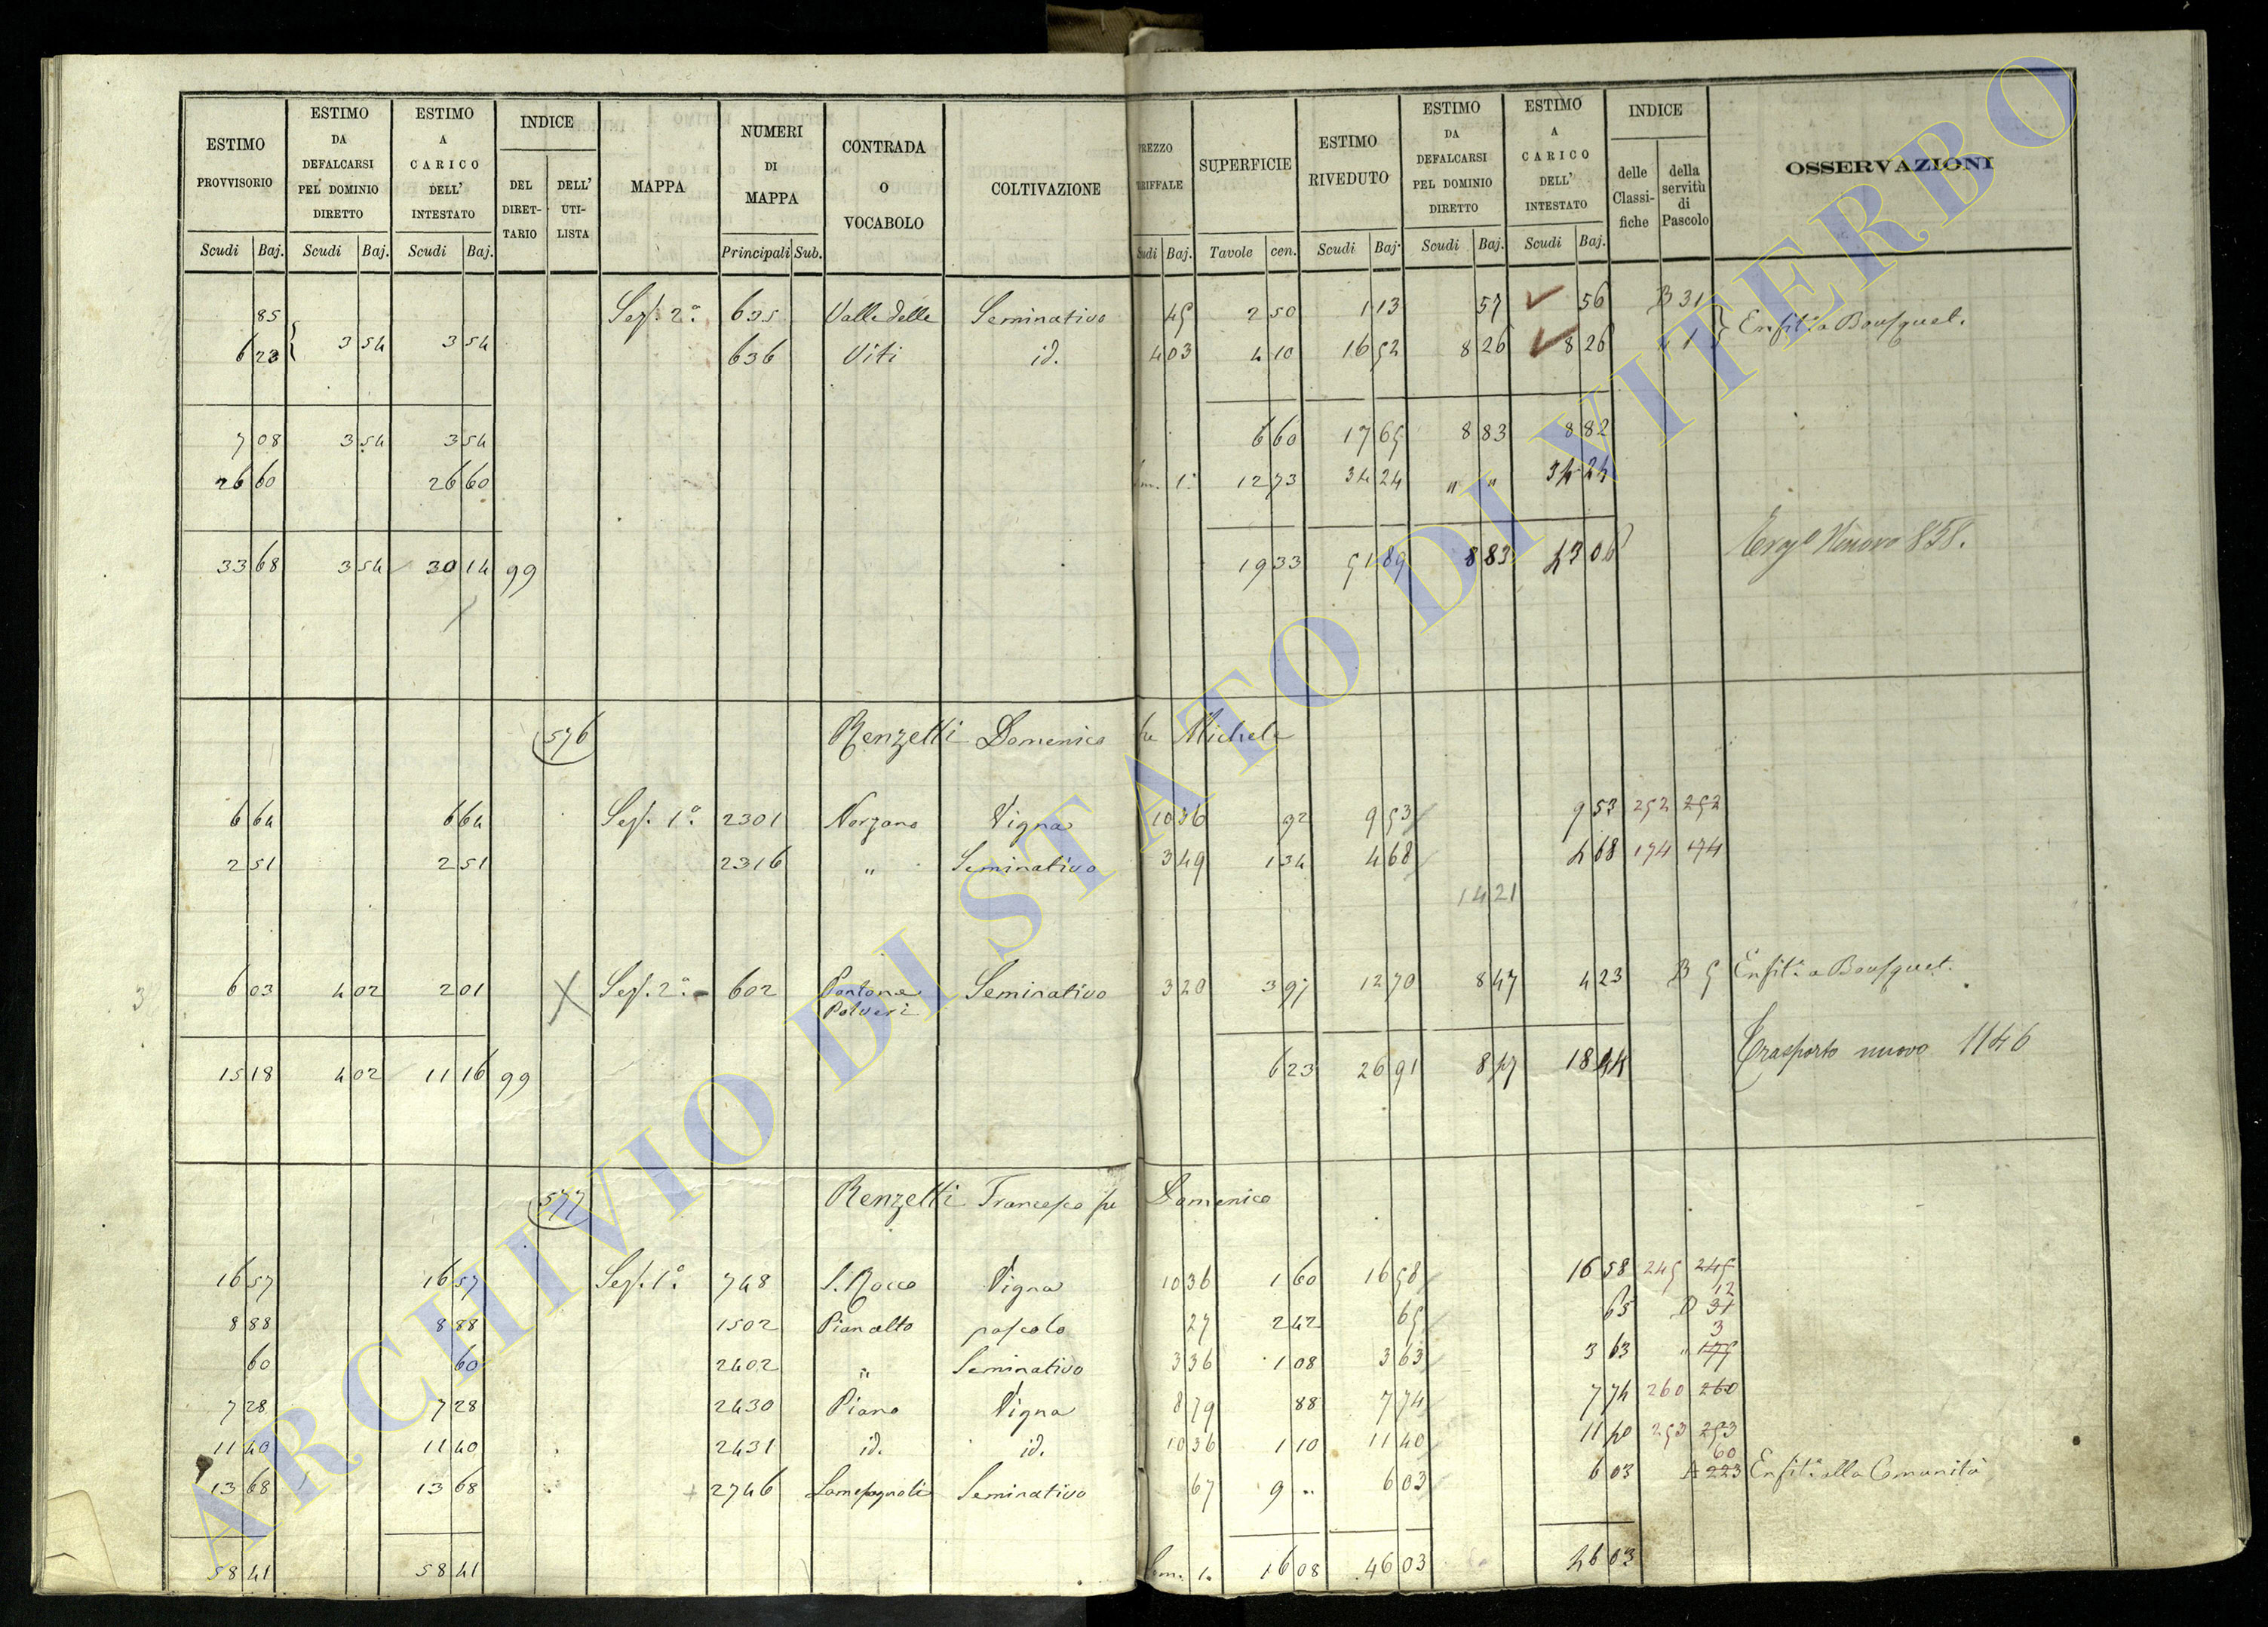 ESTIMO PROVVISORIO | ESTIMO DA DEFALCARSI PEL DOMINIO DIRETTO | ESTIMO A CARICO DELL' INTESTATO | INDICE DEL DIRETTARIO | DELL' UTILISTA | MAPPA | NUMERI DI MAPPA | CONTRADA O VOCABOLO | COLTIVAZIONE | REZZO RIFFALE | SUPERFICIE | ESTIMO RIVEDUTO | ESTIMO DA DEFALCARSI PEL DOMINIO DIRETTO | ESTIMO A CARICO DELL' INTESTATO | INDICE delle Classifiche | della servitù di Pascolo | OSSERVAZIONI
Scudi Baj. | Scudi Baj. | Scudi Baj. | Principali Sub. | udi Baj. | Tavole cen. | Scudi Baj. | Scudi Baj. | Scudi Baj.
85 Sez. 2ª 635 Valle delle Seminativo 45 2 50 1 13 57 56 B 31
6 23 3 54 3 54 636 Viti id. 4 03 4 10 16 52 8 26 8 26 " 1 Enfit. a Bousquet.
7 08 3 54 3 54 6 60 17 65 8 83 8 82
26 60 26 60 1ª 12 73 34 24 " " 34 24
33 68 3 54 30 14 99 19 33 51 89 8 83 43 06 858.
576 Renzetti Domenico fu Michele
6 64 6 64 Sez. 1ª 2301 Norzano Vigna 10 36 92 9 53 9 53 252 252
2 51 2 51 2316 " Seminativo 3 49 1 34 4 68 4 68 174 174
14 21
3 6 03 4 02 2 01 X Sez. 2ª 602 Pontone Polveri Seminativo 3 20 3 97 12 70 8 47 4 23 B 5 Enfit. a Bousquet.
15 18 4 02 11 16 99 6 23 26 91 8 47 18 44 Trasporto nuovo 1146
577 Renzetti Francesco fu Domenico
16 57 16 57 Sez. 1ª 748 S. Rocco Vigna 10 36 1 60 16 58 16 58 245 245
8 88 8 88 1502 Pianalto pascolo 27 2 42 65 65 D 31 12
60 60 2402 " Seminativo 3 36 1 08 3 63 3 63 " 175 3
7 28 7 28 2430 Piano Vigna 8 79 88 7 74 7 74 260 260
11 40 11 40 2431 id. id. 10 36 1 10 11 40 11 40 253 253
13 68 13 68 2746 Seminativo 67 9 " 6 03 6 03 A 223 60 Enfit. alla Comunità
58 41 58 41 1ª 16 08 46 03 46 03
ARCHIVIO DI STATO DI VITERBO